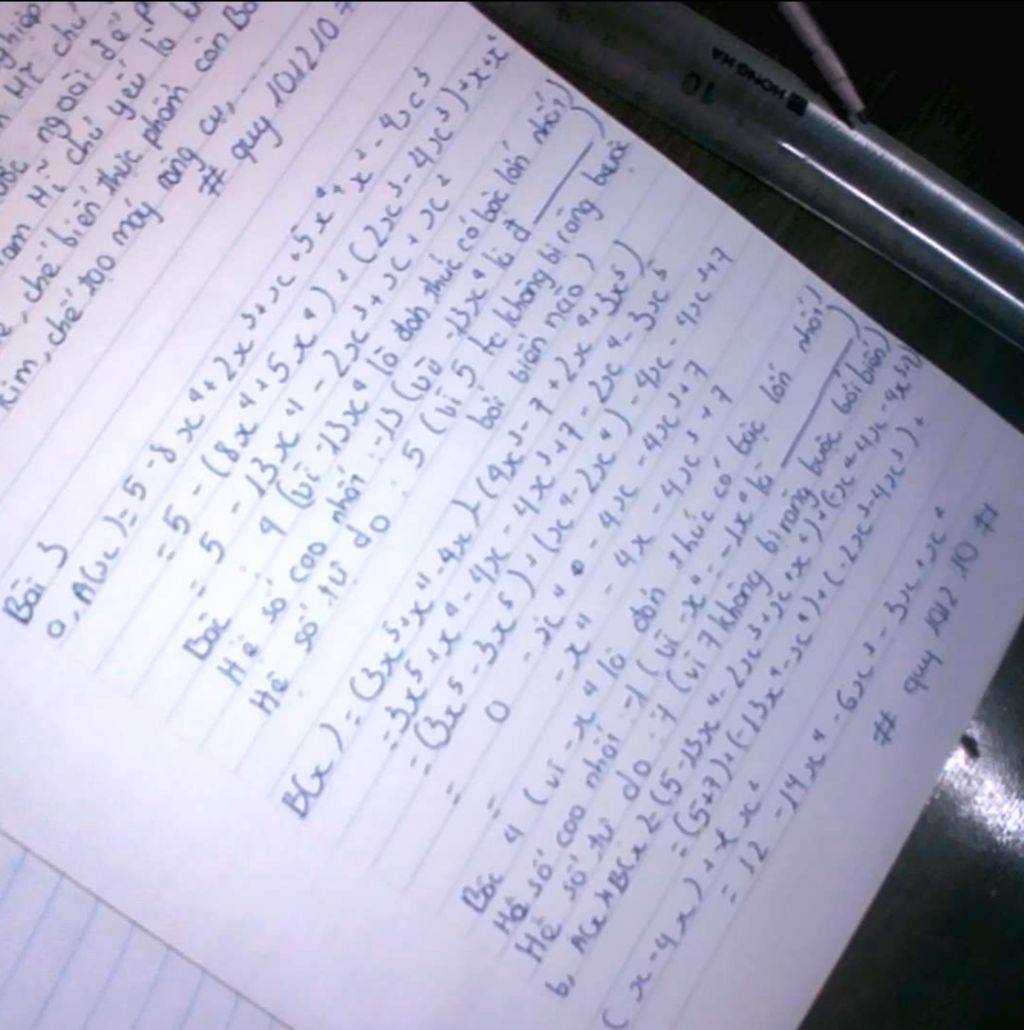 nghiệp
Mĩ chủ
ngoài để
Nam Mĩ chủ yếu là
chế biến thực phẩm còn Ba
kim, chế tạo máy công cụ,...
# quy 101210 #
HONG HA
Bài 3
a, A(x) = 5 - 8x⁴ + 2x³ + x + 5x⁴ + x² - 4x³
= 5 - (8x⁴ + 5x⁴) + (2x³ - 4x³) + x + x²
= 5 - 13x⁴ - 2x³ + x + x²
Bậc 4 (vì -13x⁴ là đơn thức có bậc lớn nhất)
Hệ số cao nhất: -13 (vì -13x⁴ là đ
Hệ số tự do: 5 (vì 5 ko không bị ràng buộc
bởi biến nào)
B(x) = (3x⁵ + x⁴ - 4x) - (4x³ - 7 + 2x⁴ + 3x⁵)
= 3x⁵ + x⁴ - 4x - 4x³ + 7 - 2x⁴ - 3x⁵
= (3x⁵ - 3x⁵) + (x⁴ - 2x⁴) - 4x - 4x³ + 7
= 0 - x⁴ - 4x - 4x³ + 7
= - x⁴ - 4x - 4x³ + 7
Bậc 4 (vì -x⁴ là đơn thức có bậc lớn nhất)
Hệ số cao nhất: -1 (vì -x⁴ = -1x⁴ là
Hệ số tự do: 7 (vì 7 không bị ràng buộc bởi biến)
b, A(x) + B(x) = (5 - 13x⁴ - 2x³ + x + x²) + (-x⁴ - 4x
= (5+7) + (-13x⁴ - x⁴) + (-2x³ - 4x³) +
(x - 4x) + x²
= 12 - 14x⁴ - 6x³ - 3x + x²
# quy 101210 #